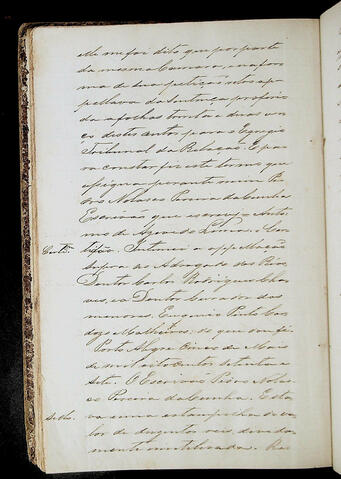 elle me foi dito que por parte
da mesma Camara, e na for
ma de sua petição retro ap
pellava da Sentença proferi
da a folhas trinta e duas ver
ço destes autos para o Egregio
Tribunal da Relação: E pa
ra constar fiz este termo que
assigna perante mim Pe
dro Nolasco Pereira da Cunha
Escrivão que escrevy. Anto
nio de Azevedo Lima. Cer
Certm. tidão. Intimei a appellação
supra ao Advogado dos Reos,
Doutor Carlos Rodrigues Cha
ves, e o Doutor Curador dos
menores Eugenio Pinto Car
dozo Malheiros; do que dou fé.
Porto Alegre onze de Maio
de mil oito centos setenta e
sete. O Escrivão Pedro Nolas
co Pereira da Cunha. Esta
Sello. va uma estampilha de va
lor de duzentos reis, devida
mente inutilisada.